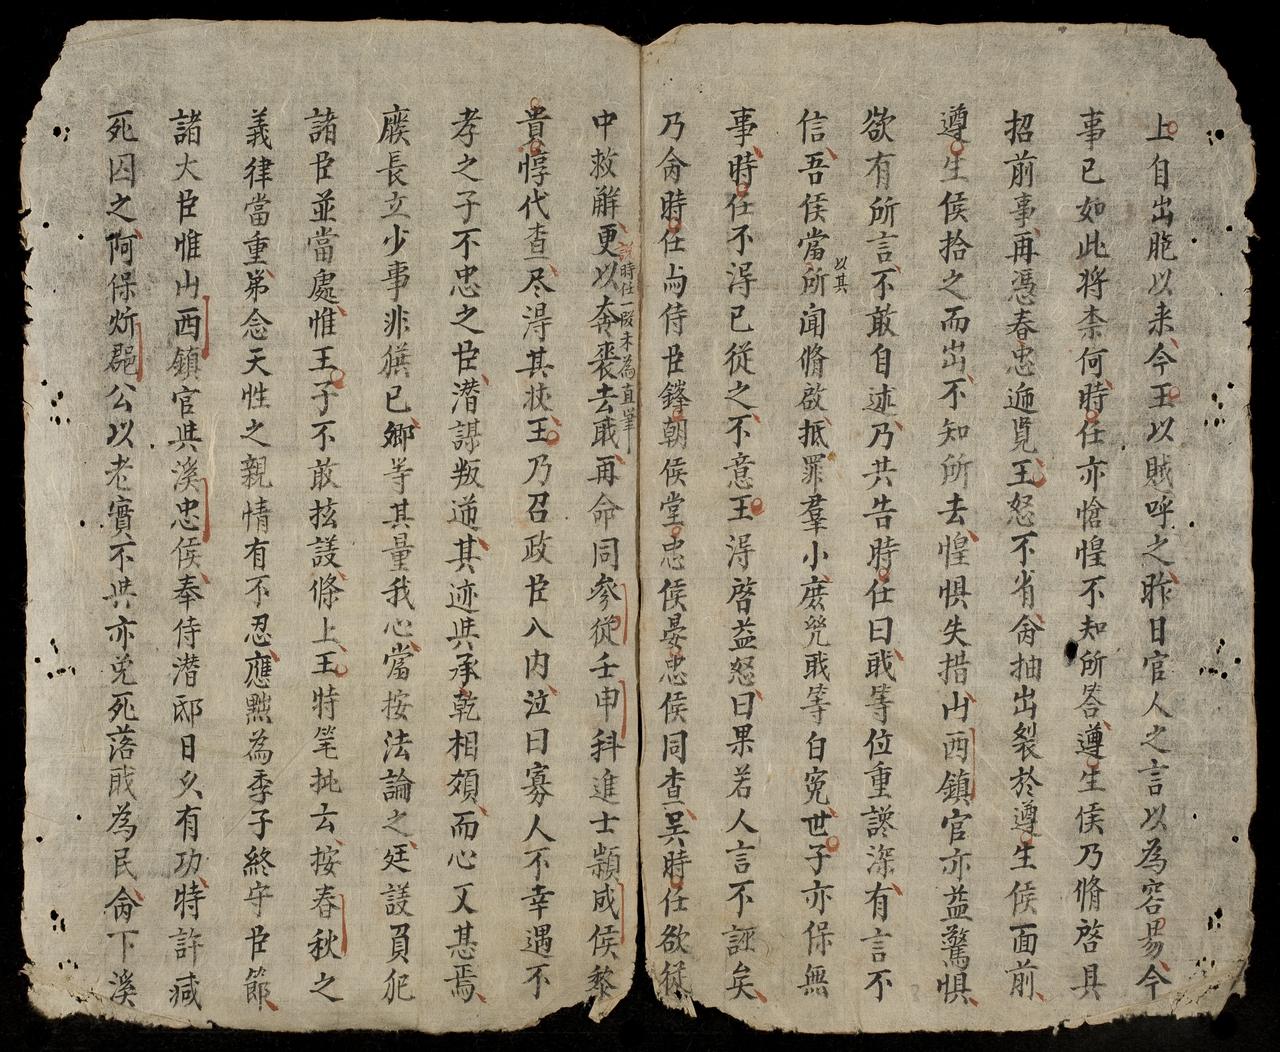 上自出胣以来今王以賊呼之昨日官人之言以為容易今
事已如此将柰何時任亦愴惶不知所答遵生侯乃脩啓具
招前事再憑春忠迊覧王怒不省侖抽出裂於遵生侯面前
遵生侯拾之而出不知所去惶惧失措山西鎮官亦益驚惧
欲有所言不敢自述乃共告時任曰戝等位重謗深有言不
信吾侯當所聞脩啟抵罪羣小庶㒭戝等白寃世子亦保無
以其
事時任不淂已從之不意王淂啓益怒曰果若人言不誣矣
乃侖時任與侍臣鋒朝侯堂忠侯晏忠侯同查吴時任欲従
中救解更以奔喪去戝再命同參従壬申科進士顥成侯黎
說時任一段未為直筆
貴惇代查尽淂其状王乃召政臣入内泣曰寡人不幸遇不
孝之子不忠之臣潜謀叛逆其迹與承乾相類而心又甚焉
廢長立少事非獲已卿等其量我心當按法論之廷議員犯
諸臣並當處惟王子不敢㧋議條上王特筆批云按春秋之
義律當重第念天性之親情有不忍應黜為季子終守臣節
諸大臣惟山西鎮官與溪忠侯奉侍潜邸日久有功特許减
死囚之阿保炘郡公以老實不與亦免死落戝為民侖下溪